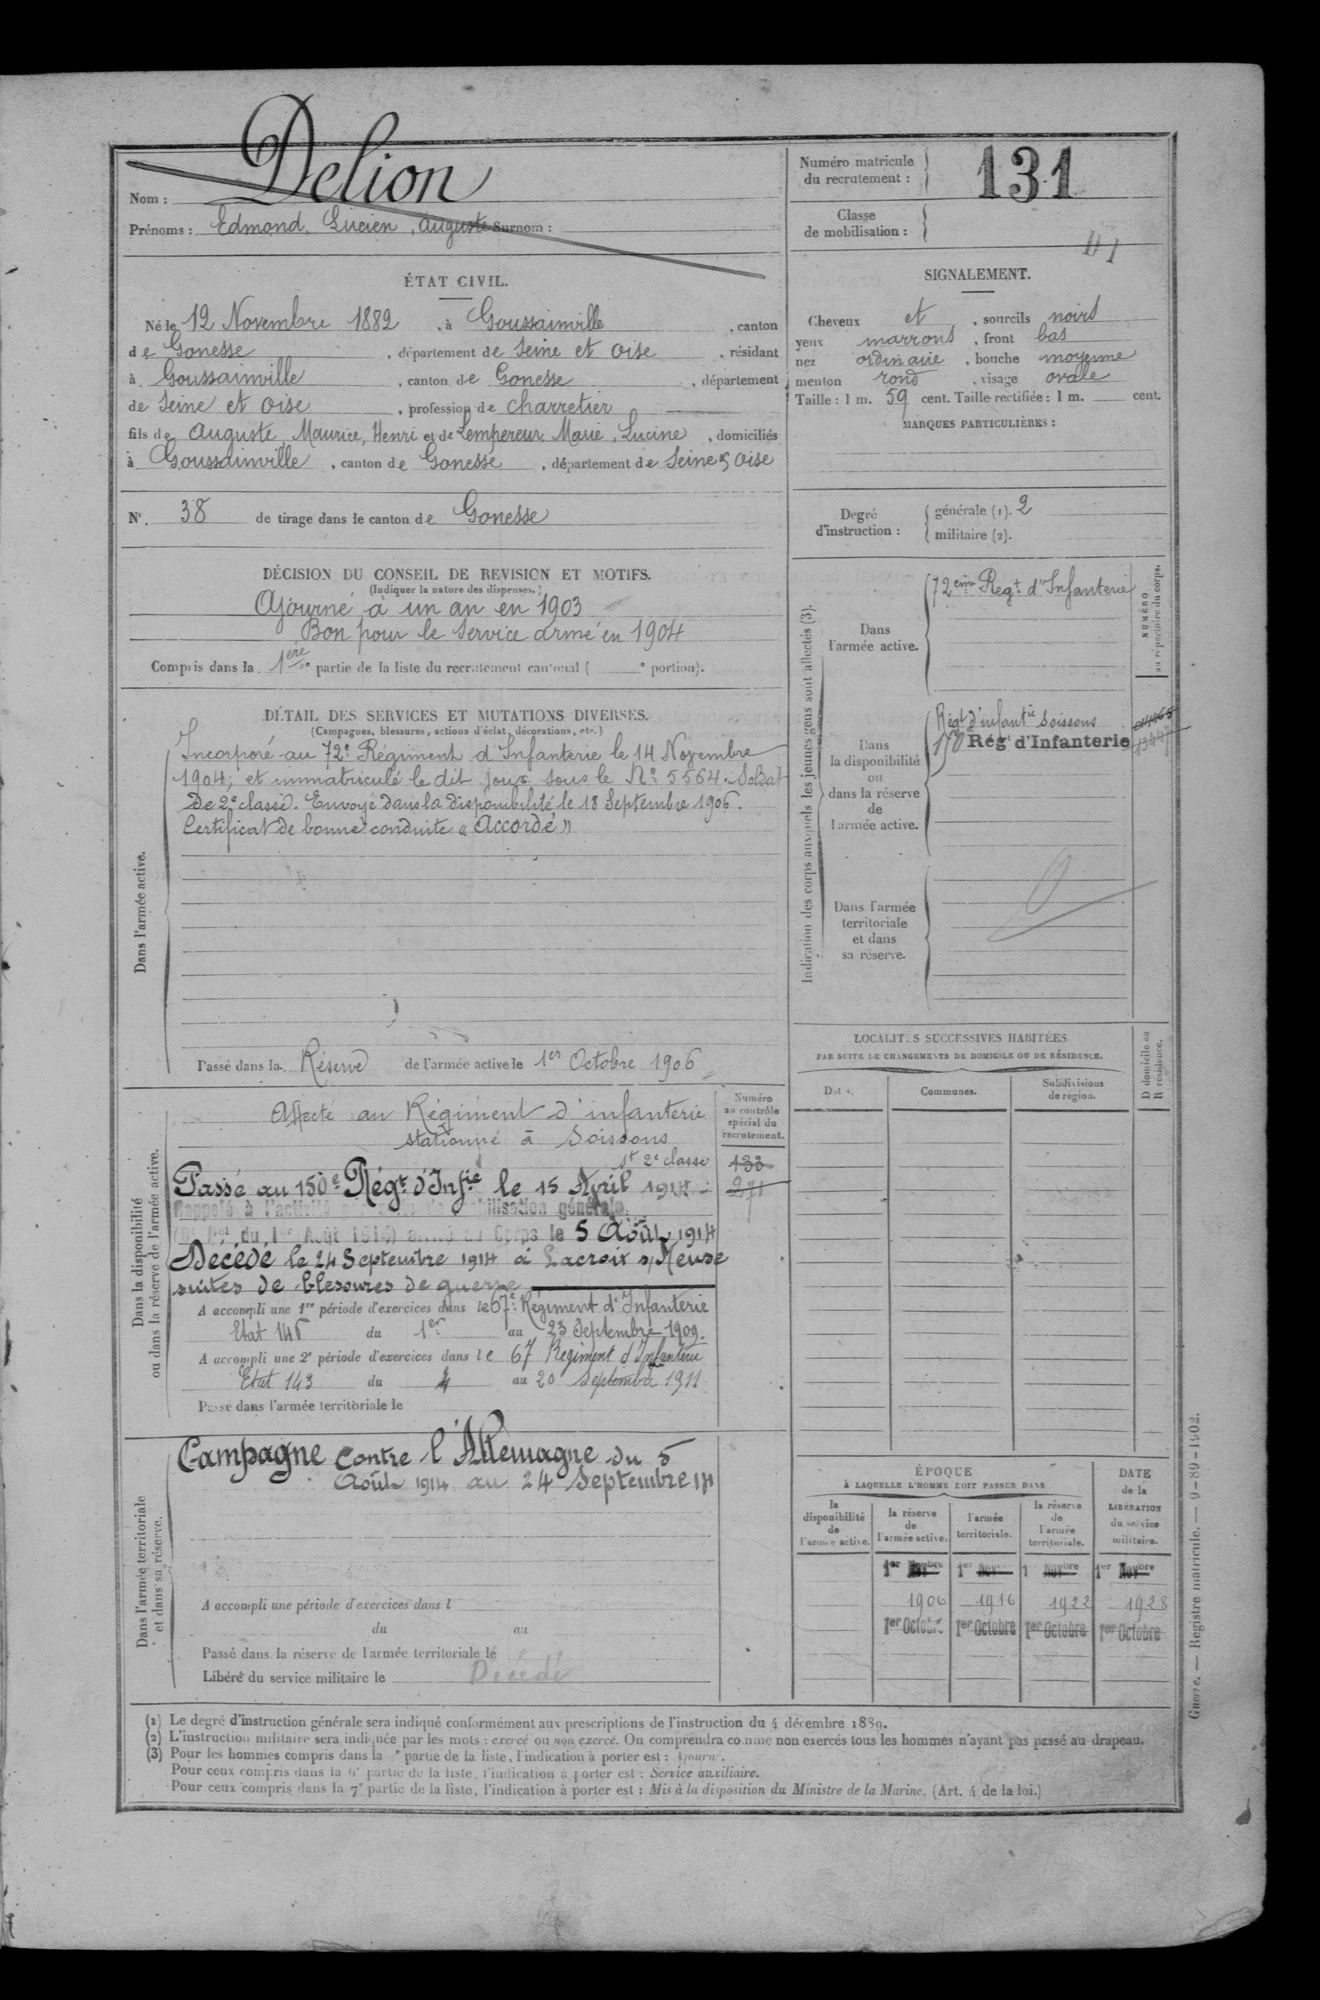 Delion
Nom :
Prénoms : Edmond, Lucien, Auguste Surnom :
Numéro matricule
du recrutement :
131
Classe
de mobilisation :
ÉTAT CIVIL.
Né le 12 Novembre 1882, à Goussainville, canton
de Gonesse, département de Seine et Oise, résidant
à Goussainville, canton de Gonesse, département
de Seine et Oise, profession de charretier
fils de Auguste, Maurice, Henri et de Lempereur Marie, Lucine, domiciliés
à Goussainville, canton de Gonesse, département de Seine & Oise
N° 38 de tirage dans le canton de Gonesse
SIGNALEMENT.
Cheveux et, sourcils noirs
yeux marrons, front bas
nez ordinaire, bouche moyenne
menton rond, visage ovale
Taille : 1 m. 59 cent. Taille rectifiée : 1 m. cent.
MARQUES PARTICULIÈRES :
Degré
d'instruction :
générale (1). 2
militaire (2).
DÉCISION DU CONSEIL DE REVISION ET MOTIFS.
(Indiquer la nature des dispenses.)
Ajourné à un an en 1903
Bon pour le service armé en 1904
Compris dans la 1ère partie de la liste du recrutement cantonal ( e portion).
DÉTAIL DES SERVICES ET MUTATIONS DIVERSES.
(Campagnes, blessures, actions d'éclat, décorations, etc.)
Dans l'armée active.
Incorporé au 72e Régiment d'Infanterie le 14 Novembre
1904, et immatriculé le dit jour sous le N° 5564. Soldat
de 2e classe. Envoyé dans la disponibilité le 18 Septembre 1906.
Certificat de bonne conduite « Accordé »
Passé dans la Réserve de l'armée active le 1er Octobre 1906
Indication des corps auxquels les jeunes gens sont affectés (3).
NUMÉRO
au répertoire du corps.
Dans
l'armée active.
72ème Régt d'Infanterie
Dans
la disponibilité
ou
dans la réserve
de
l'armée active.
Régt d'infantie Soissons
Régt d'Infanterie
Dans l'armée
territoriale
et dans
sa réserve.
Dans la disponibilité
ou dans la réserve de l'armée active.
Numéro
au contrôle
spécial du
recrutement.
Affecté au Régiment d'infanterie
stationné à Soissons
st 2e classe
133
271
Passé au 150e Régt d'Infie le 15 Avril 1914
Rappelé à l'activité mobilisation générale
du 1er Août 1914) Corps le 5 Août 1914
Décédé le 24 Septembre 1914 à Lacroix s/Meuse
suites de blessures de guerre
A accompli une 1re période d'exercices dans le 67e Régiment d'Infanterie
Etat 146 du 1er au 23 Septembre 1909.
A accompli une 2e période d'exercices dans le 67 Régiment d'Infanterie
Etat 143 du 4 au 20 Septembre 1911
Passé dans l'armée territoriale le
LOCALITÉS SUCCESSIVES HABITÉES
PAR SUITE DE CHANGEMENTS DE DOMICILE OU DE RÉSIDENCE.
Communes.
Subdivisions
de région.
D domicile ou
R résidence.
Dans l'armée territoriale
et dans sa réserve.
Campagne contre l'Allemagne du 5
Août 1914 au 24 Septembre 14
A accompli une période d'exercices dans l
du au
Passé dans la réserve de l'armée territoriale le
Libéré du service militaire le Décédé
ÉPOQUE
À LAQUELLE L'HOMME DOIT PASSER DANS
DATE
de la
LIBÉRATION
du service
militaire.
la
disponibilité
de
l'armée active.
la réserve
de
l'armée active.
l'armée
territoriale.
la réserve
de
l'armée
territoriale.
1er Novbre 1er Nov 1 Novbre 1er Novbre
1906 1916 1922 1928
1er Octobre 1er Octobre 1er Octobre 1er Octobre
(1) Le degré d'instruction générale sera indiqué conformément aux prescriptions de l'instruction du 4 décembre 1889.
(2) L'instruction militaire sera indiquée par les mots : exercé ou non exercé. On comprendra comme non exercés tous les hommes n'ayant pas passé au drapeau.
(3) Pour les hommes compris dans la e partie de la liste, l'indication à porter est :
Pour ceux compris dans la 6e partie de la liste, l'indication à porter est : Service auxiliaire.
Pour ceux compris dans la 7e partie de la liste, l'indication à porter est : Mis à la disposition du Ministre de la Marine. (Art. 4 de la loi.)
Guerre. — Registre matricule. — 9-89-1902.